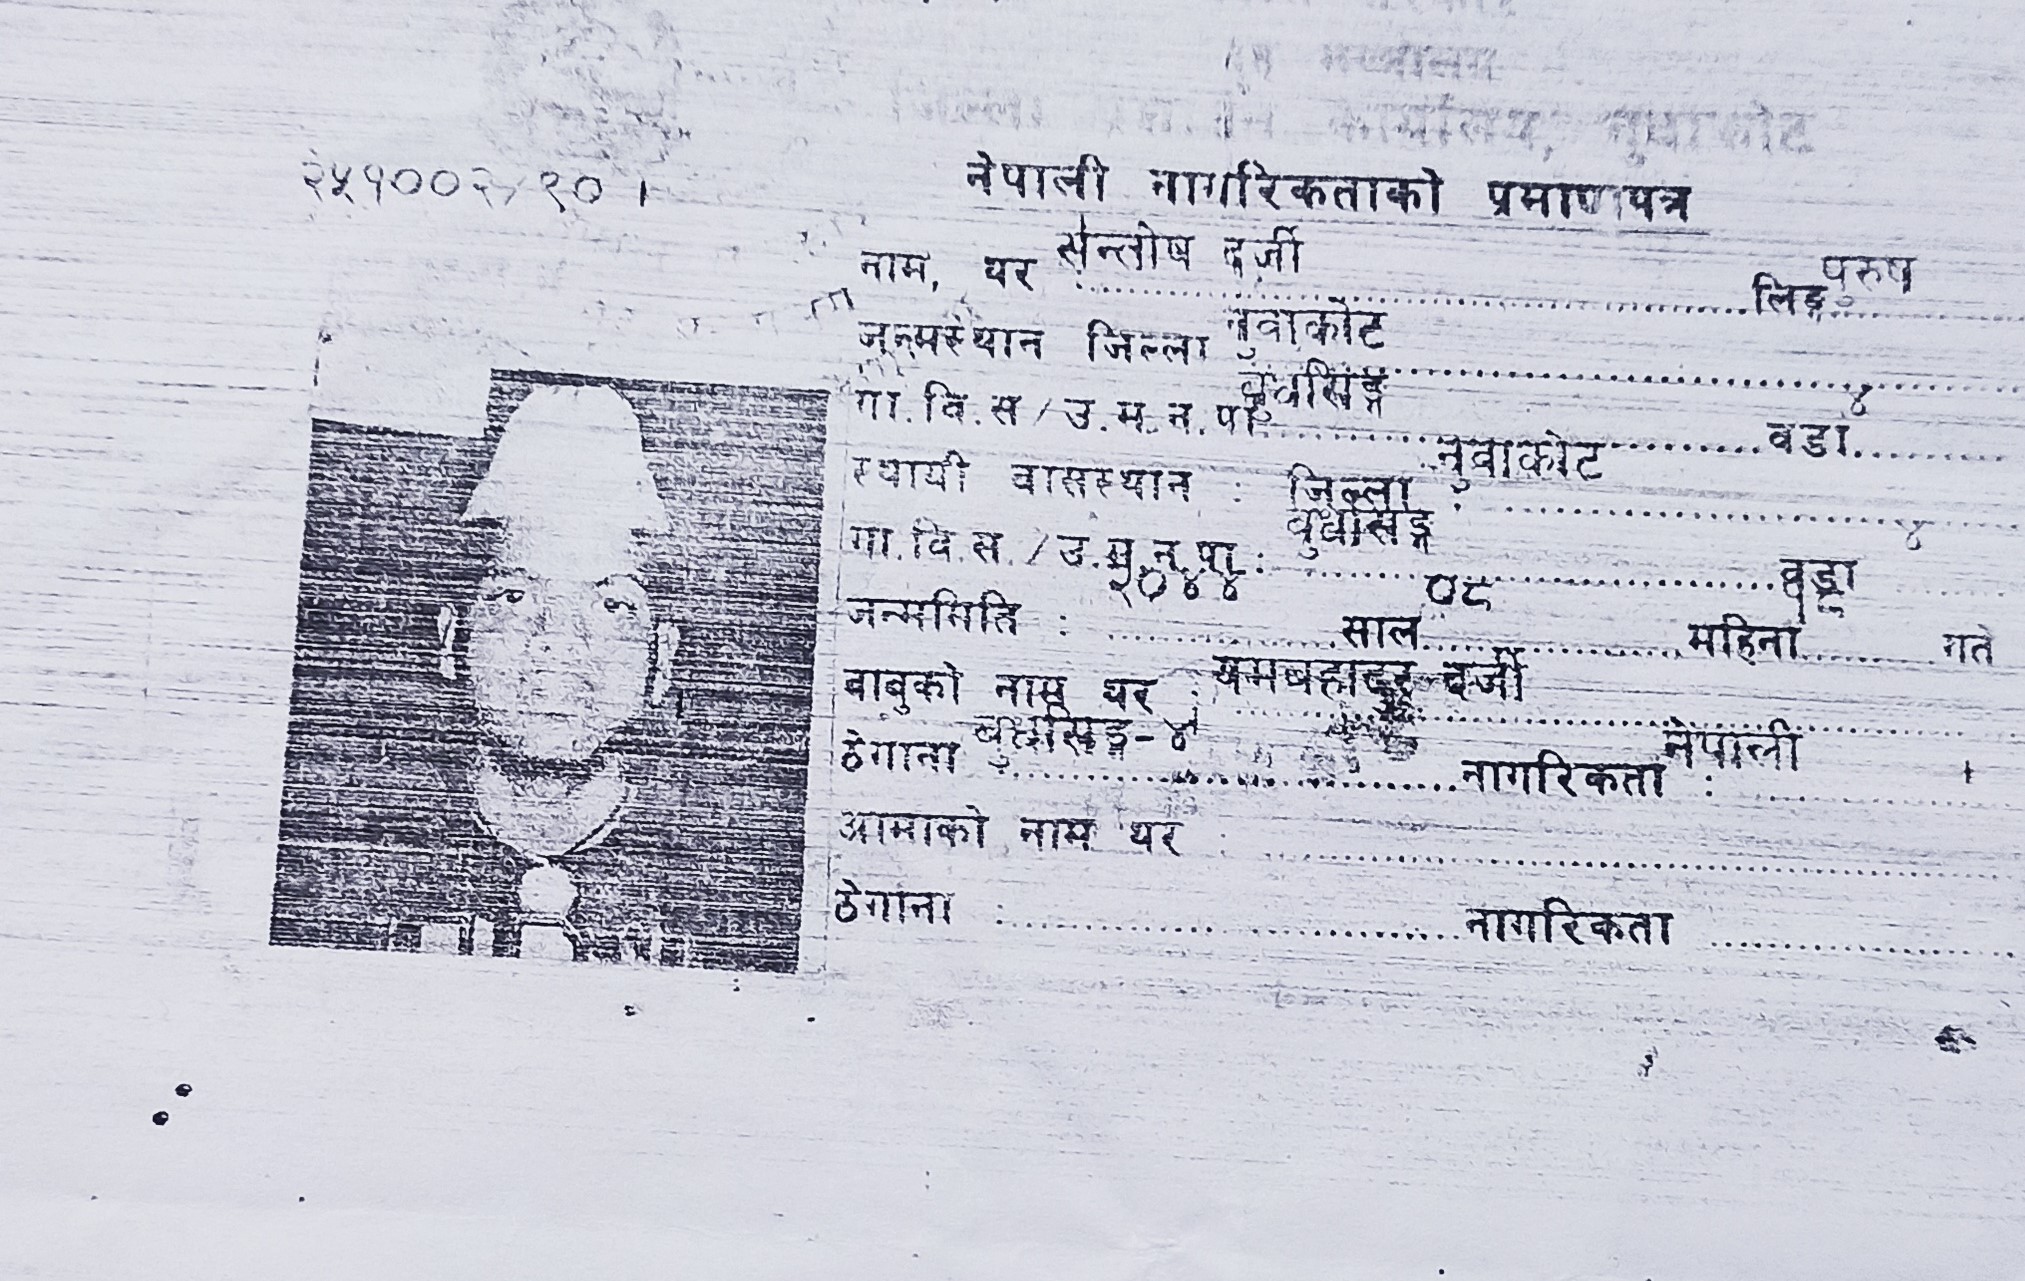 कार्यालय, नुवाकोट
नेपाली नागरिकताको प्रमाणपत्र
नाम, थर सन्तोष दर्जी लिङ्ग पुरुष
जन्मस्थान जिल्ला नुवाकोट
गा.वि.स/उ.म.न.पा बुधसिङ्ग वडा ४
स्थायी वासस्थान : जिल्ला : नुवाकोट
गा.वि.स./उ.म.न.पा : बुधसिङ्ग वडा ४
जन्ममिति : २०४४ साल ०८ महिना गते
बाबुको नाम थर : यमबहादुर दर्जी
ठेगाना बुधसिङ्ग-४ नागरिकता : नेपाली
आमाको नाम थर :
ठेगाना : नागरिकता